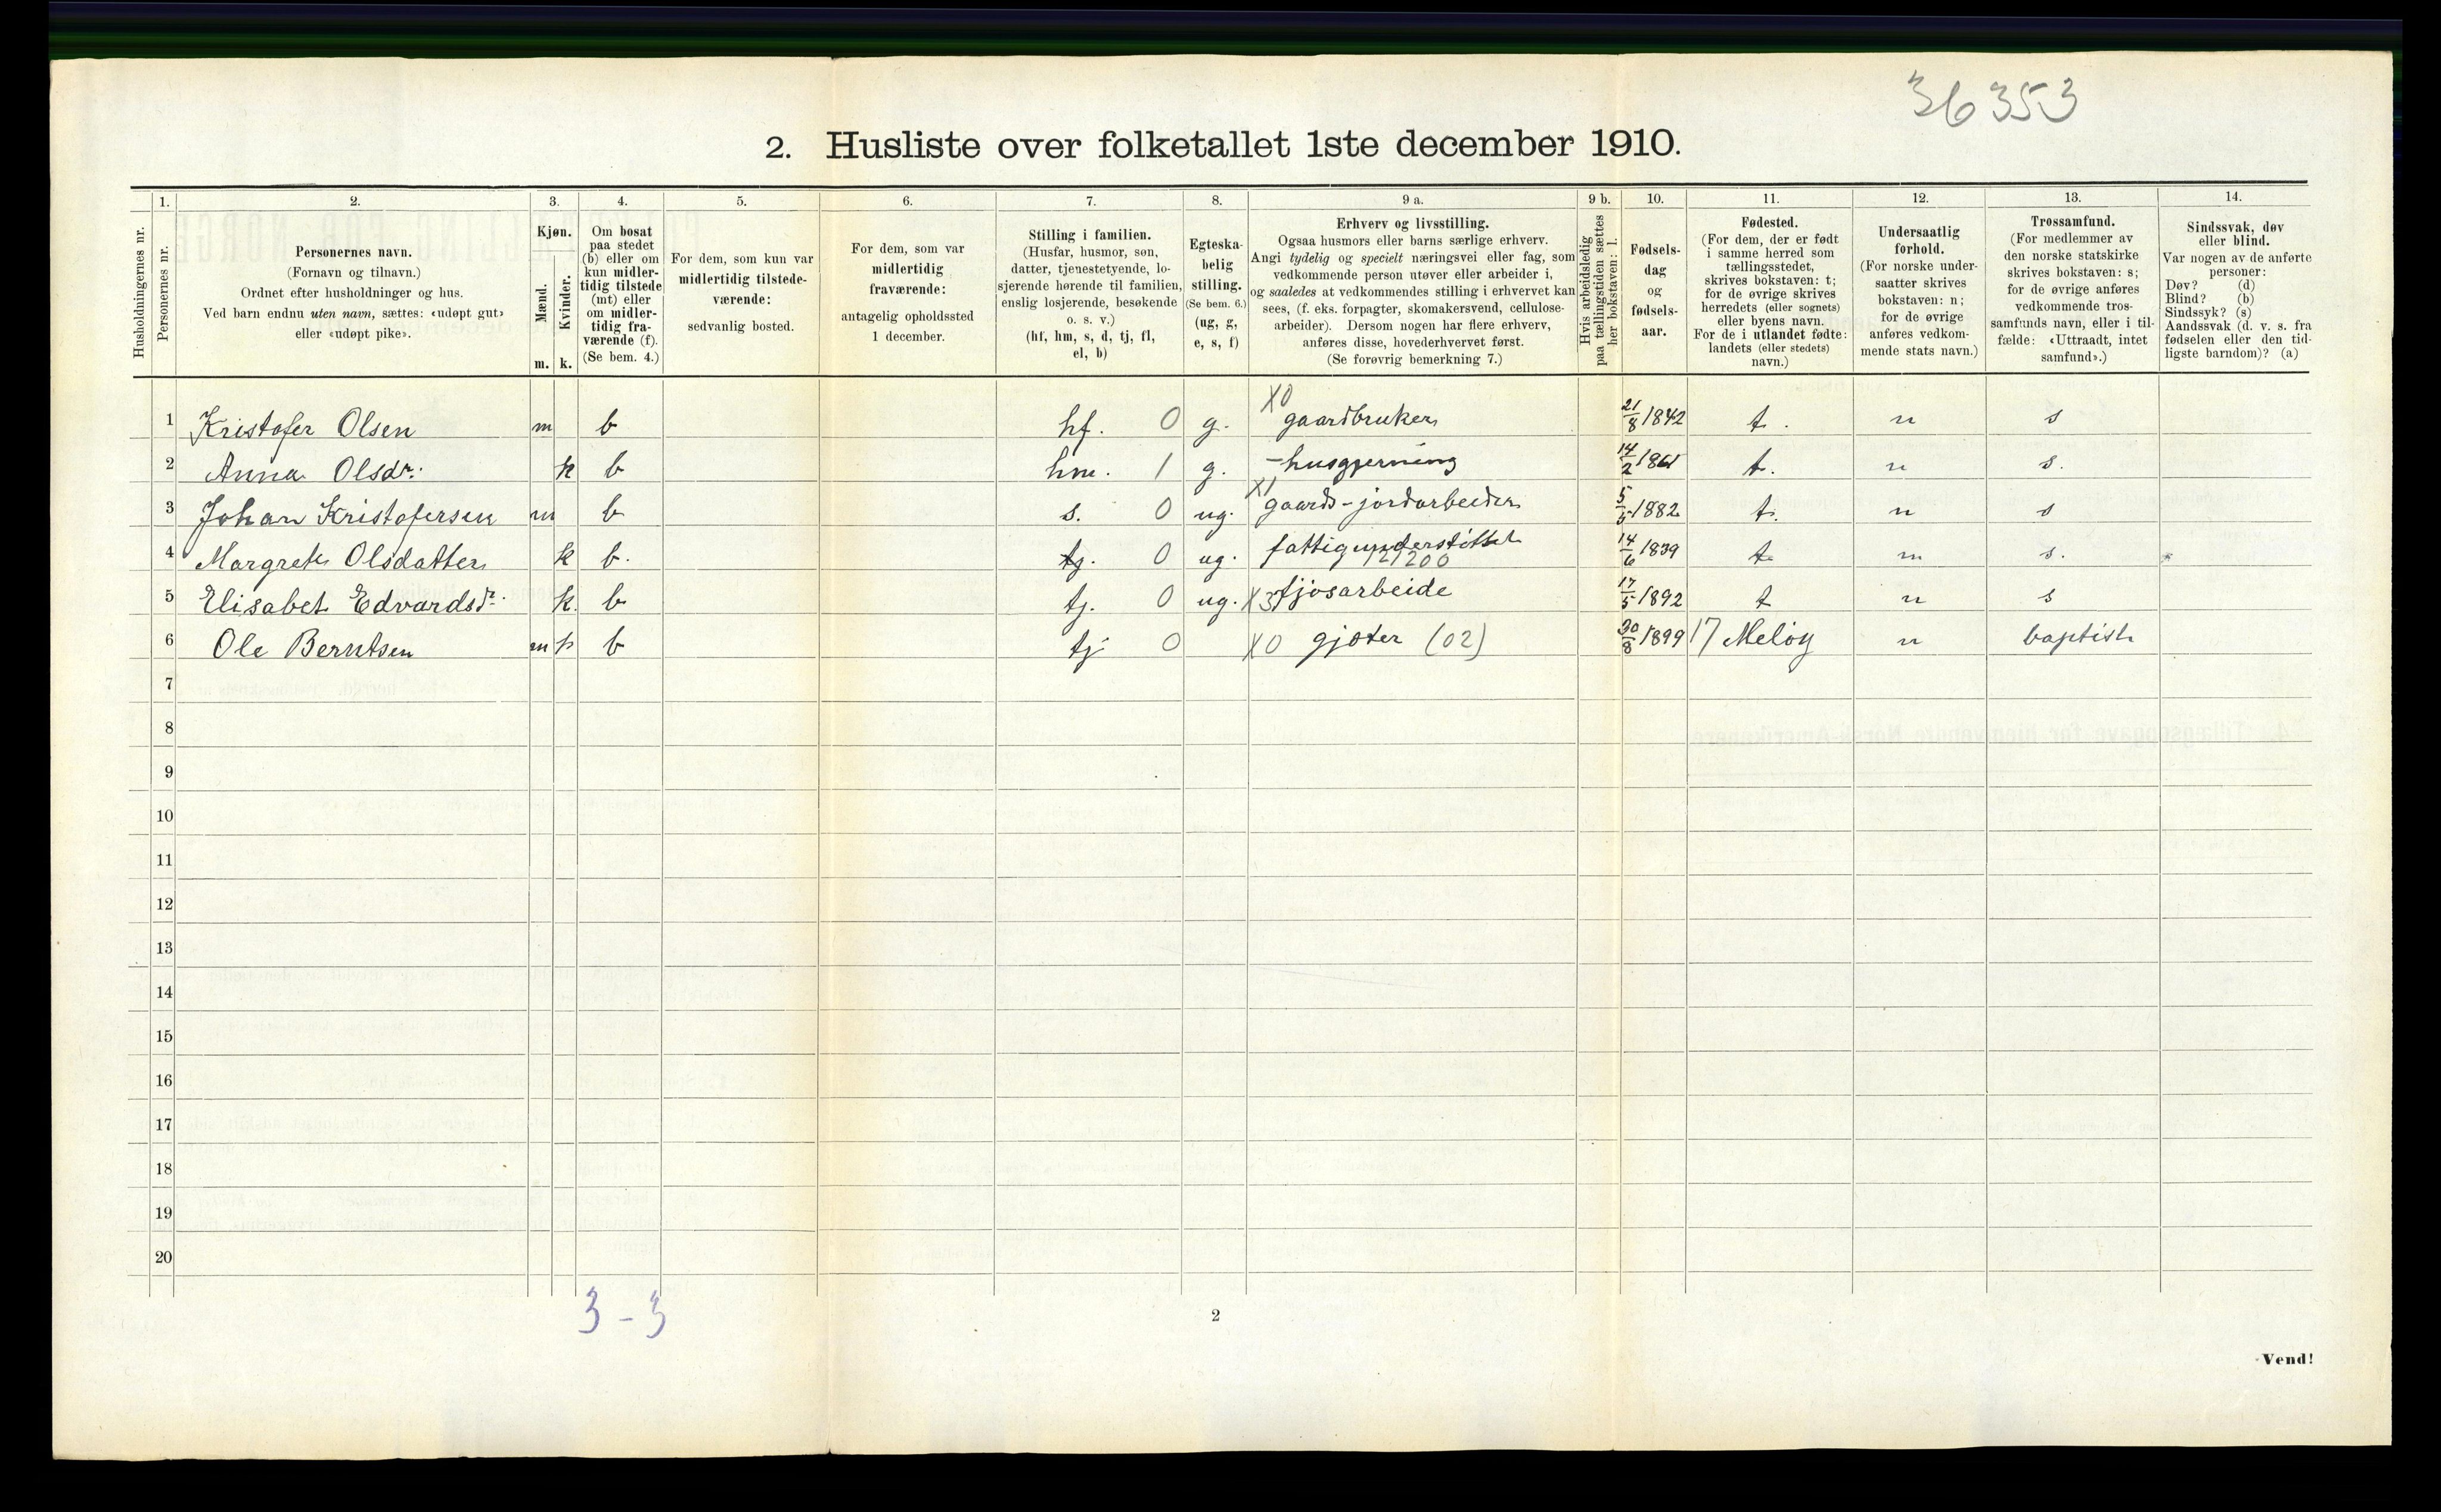 36353
2. Husliste over folketallet 1ste december 1910.
1. 2. 3. 4. 5. 6. 7. 8. 9 a. 9 b. 10. 11. 12. 13. 14.
Husholdningernes nr.
Personernes nr.
Personernes navn.
(Fornavn og tilnavn.)
Ordnet efter husholdninger og hus.
Ved barn endnu uten navn, sættes: «udøpt gut»
eller «udøpt pike».
Kjøn.
Mænd.
Kvinder.
m. k.
Om bosat
paa stedet
(b) eller om
kun midler-
tidig tilstede
(mt) eller
om midler-
tidig fra-
værende (f).
(Se bem. 4.)
For dem, som kun var
midlertidig tilstede-
værende:
sedvanlig bosted.
For dem, som var
midlertidig
fraværende:
antagelig opholdssted
1 december.
Stilling i familien.
(Husfar, husmor, søn,
datter, tjenestetyende, lo-
sjerende hørende til familien,
enslig losjerende, besøkende
o. s. v.)
(hf, hm, s, d, tj, fl,
el, b)
Egteska-
belig
stilling.
(Se bem. 6.)
(ug, g,
e, s, f)
Erhverv og livsstilling.
Ogsaa husmors eller barns særlige erhverv.
Angi tydelig og specielt næringsvei eller fag, som
vedkommende person utøver eller arbeider i,
og saaledes at vedkommendes stilling i erhvervet kan
sees, (f. eks. forpagter, skomakersvend, cellulose-
arbeider). Dersom nogen har flere erhverv,
anføres disse, hovederhvervet først.
(Se forøvrig bemerkning 7.)
Hvis arbeidsledig
paa tællingstiden sættes
her bokstaven: l.
Fødsels-
dag
og
fødsels-
aar.
Fødested.
(For dem, der er født
i samme herred som
tællingsstedet,
skrives bokstaven: t;
for de øvrige skrives
herredets (eller sognets)
eller byens navn.
For de i utlandet fødte:
landets (eller stedets)
navn.)
Undersaatlig
forhold.
(For norske under-
saatter skrives
bokstaven: n;
for de øvrige
anføres vedkom-
mende stats navn.)
Trossamfund.
(For medlemmer av
den norske statskirke
skrives bokstaven: s;
for de øvrige anføres
vedkommende tros-
samfunds navn, eller i til-
fælde: «Uttraadt, intet
samfund».)
Sindssvak, døv
eller blind.
Var nogen av de anførte
personer:
Døv? (d)
Blind? (b)
Sindssyk? (s)
Aandssvak (d. v. s. fra
fødselen eller den tid-
ligste barndom)? (a)
X0
1 Kristofer Olsen m b hf. 0 g. gaardbruker 21/8 1842 t. n s
2 Anna Olsdr. k b hm. 1 g. - husgjerning 14/2 1861 t. n s.
X1
3 Johan Kristofersen m b s. 0 ug. gaards-jordarbeider 5/5 1882 t. n s
4 Margrete Olsdatter k b. tj. 0 ug. fattigunderstøttet 14/6 1839 t. n s.
121200
5 Elisabet Edvardsdr. k. b tj. 0 ug. X3 fjosarbeide 17/5 1892 t n s
6 Ole Berntsen m k b tj 0 X0 gjæter (02) 30/8 1899 17 Meløy n baptist
7
8
9
10
11
12
13
14
15
16
17
18
19
20
3 - 3
2
Vend!